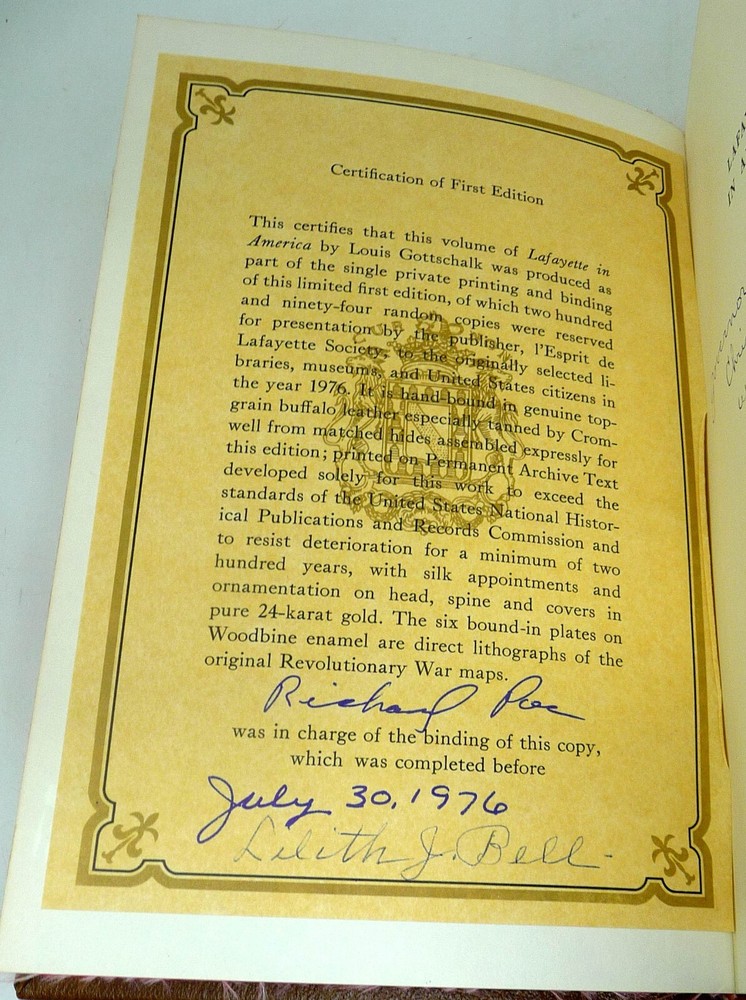 Certification of First Edition
This certifies that this volume of Lafayette in
America by Louis Gottschalk was produced as
part of the single private printing and binding
of this limited first edition, of which two hundred
and ninety-four random copies were reserved
for presentation by the publisher, l'Esprit de
Lafayette Society, to the originally selected li-
braries, museums, and United States citizens in
the year 1976. It is hand-bound in genuine top-
grain buffalo leather especially tanned by Crom-
well from matched hides assembled expressly for
this edition; printed on Permanent Archive Text
developed solely for this work to exceed the
standards of the United States National Histor-
ical Publications and Records Commission and
to resist deterioration for a minimum of two
hundred years, with silk appointments and
ornamentation on head, spine and covers in
pure 24-karat gold. The six bound-in plates on
Woodbine enamel are direct lithographs of the
original Revolutionary War maps.
Richard Poe
was in charge of the binding of this copy,
which was completed before
July 30, 1976
Lilith J. Bell